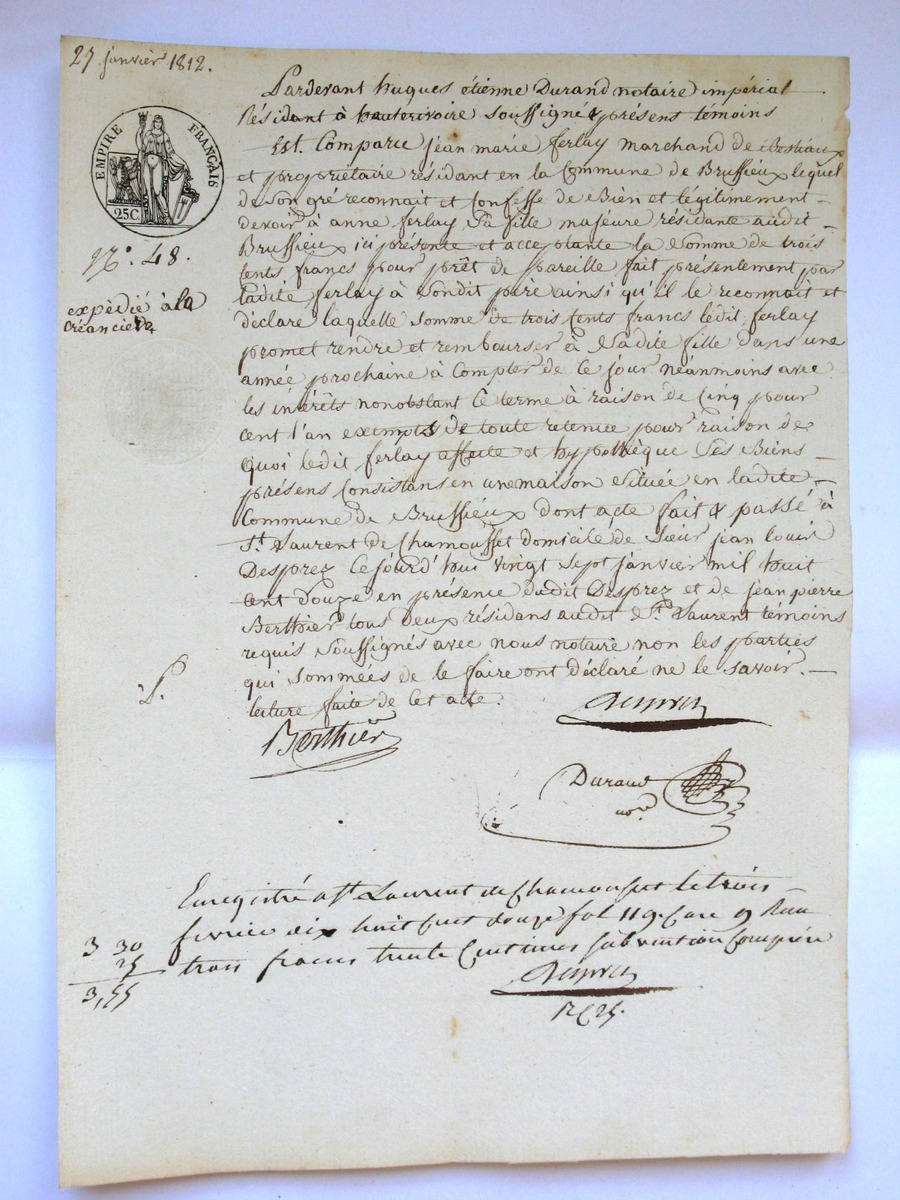 27 janvier 1812.
EMPIRE FRANÇAIS
25C.
N.° 48.
expèdié à la
créancière
Pardevant hugues étienne Durand notaire impérial
Résidant à hauterivoire soussigné & présens témoins
Est Comparu jean marie ferlay marchand de Bestiaux
et propriétaire résidant en la Commune de Brussieux lequel
de Son gré reconnait et Confesse de Bien et légitimement
devoir à anne ferlay Sa fille majeure résidante audit
Brussieux ici présente et acceptante la Somme de trois
cents francs pour prêt de pareille fait présentement par
ladite ferlay à Sondit père ainsi qu'il le reconnait et
déclare laquelle somme de trois cents francs ledit ferlay
promet rendre et rembourser à Sadite fille dans une
année prochaine à Compter de ce jour néanmoins avec
les intérêts nonobstant le terme à raison de Cinq pour
cent l'an exempts de toute retenue pour raison de
quoi ledit ferlay affecte et hypothèque Ses Biens
présens Consistans en une maison Située en ladite
Commune de Brussieux dont acte fait & passé à
St. Laurent de Chamousset domicile de Sieur jean louis
Desprez Cejourd'hui vingt Sept janvier mil huit
cent douze en présence dudit Desprez et de jean pierre
Berthier tous deux résidans audit St. Laurent témoins
requis Soussignés avec nous notaire non les parties
qui Sommées de le faire ont déclaré ne le Savoir.
lecture faite de cet acte.
Berthier
Durand
nore
Enregistré à St Laurent de Chamousset le trois
fevrier dix huit cent douze fol 119. Case 9 Reçu
trois francs trente Centimes Subvention Comprise
3 30
25
3,55